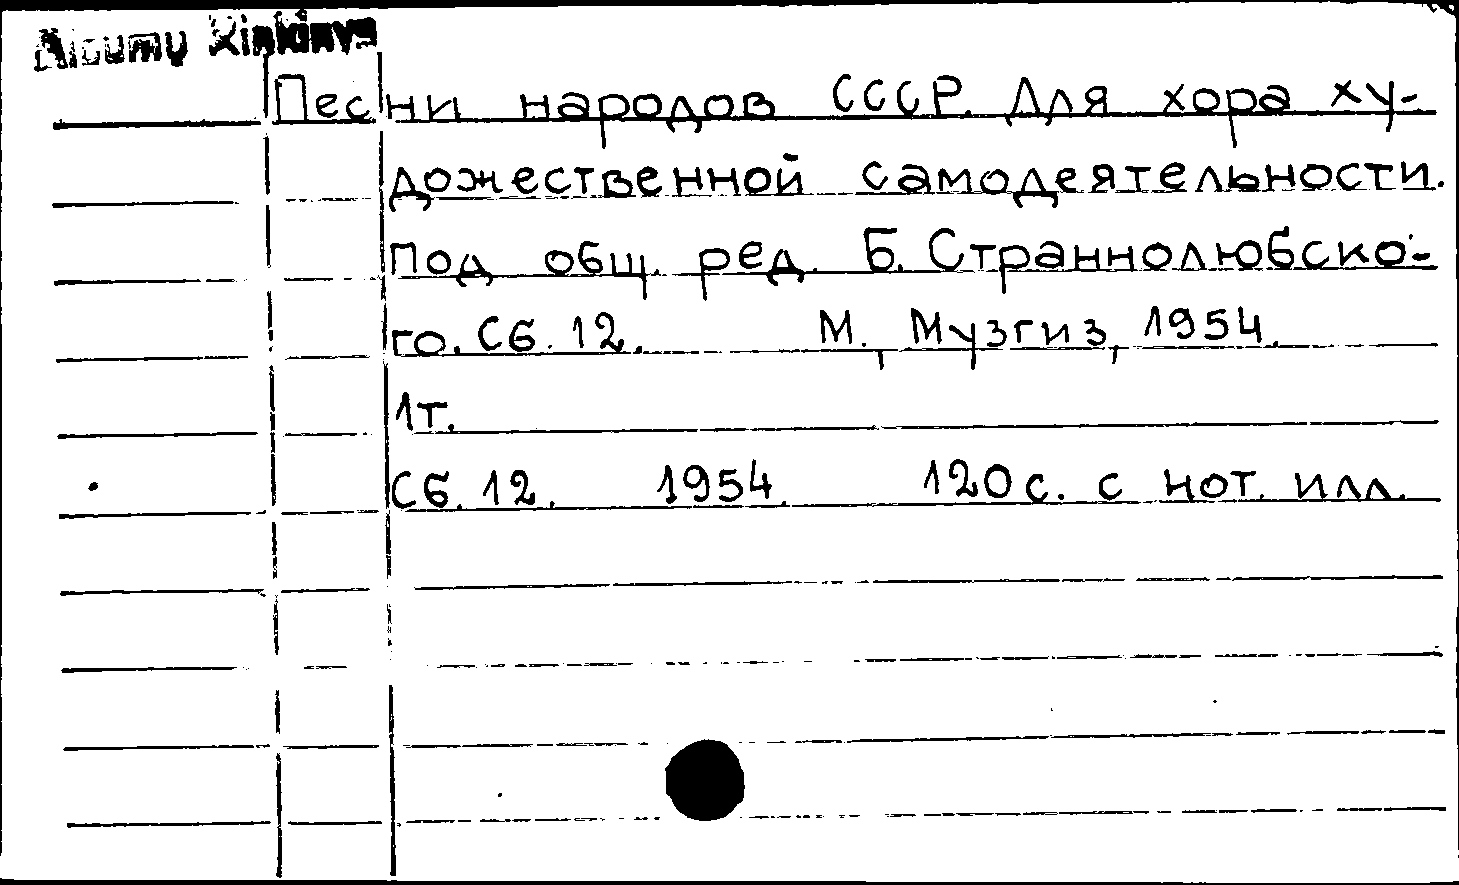 Песни народов СССР. Для хора ху-
дожественной самодеятельности.
Под общ. ред. Б. Страннолюбско-
го. Сб. 12. М., Музгиз, 1954.
1т.
Сб. 12. 1954. 120 с. с нот. илл.